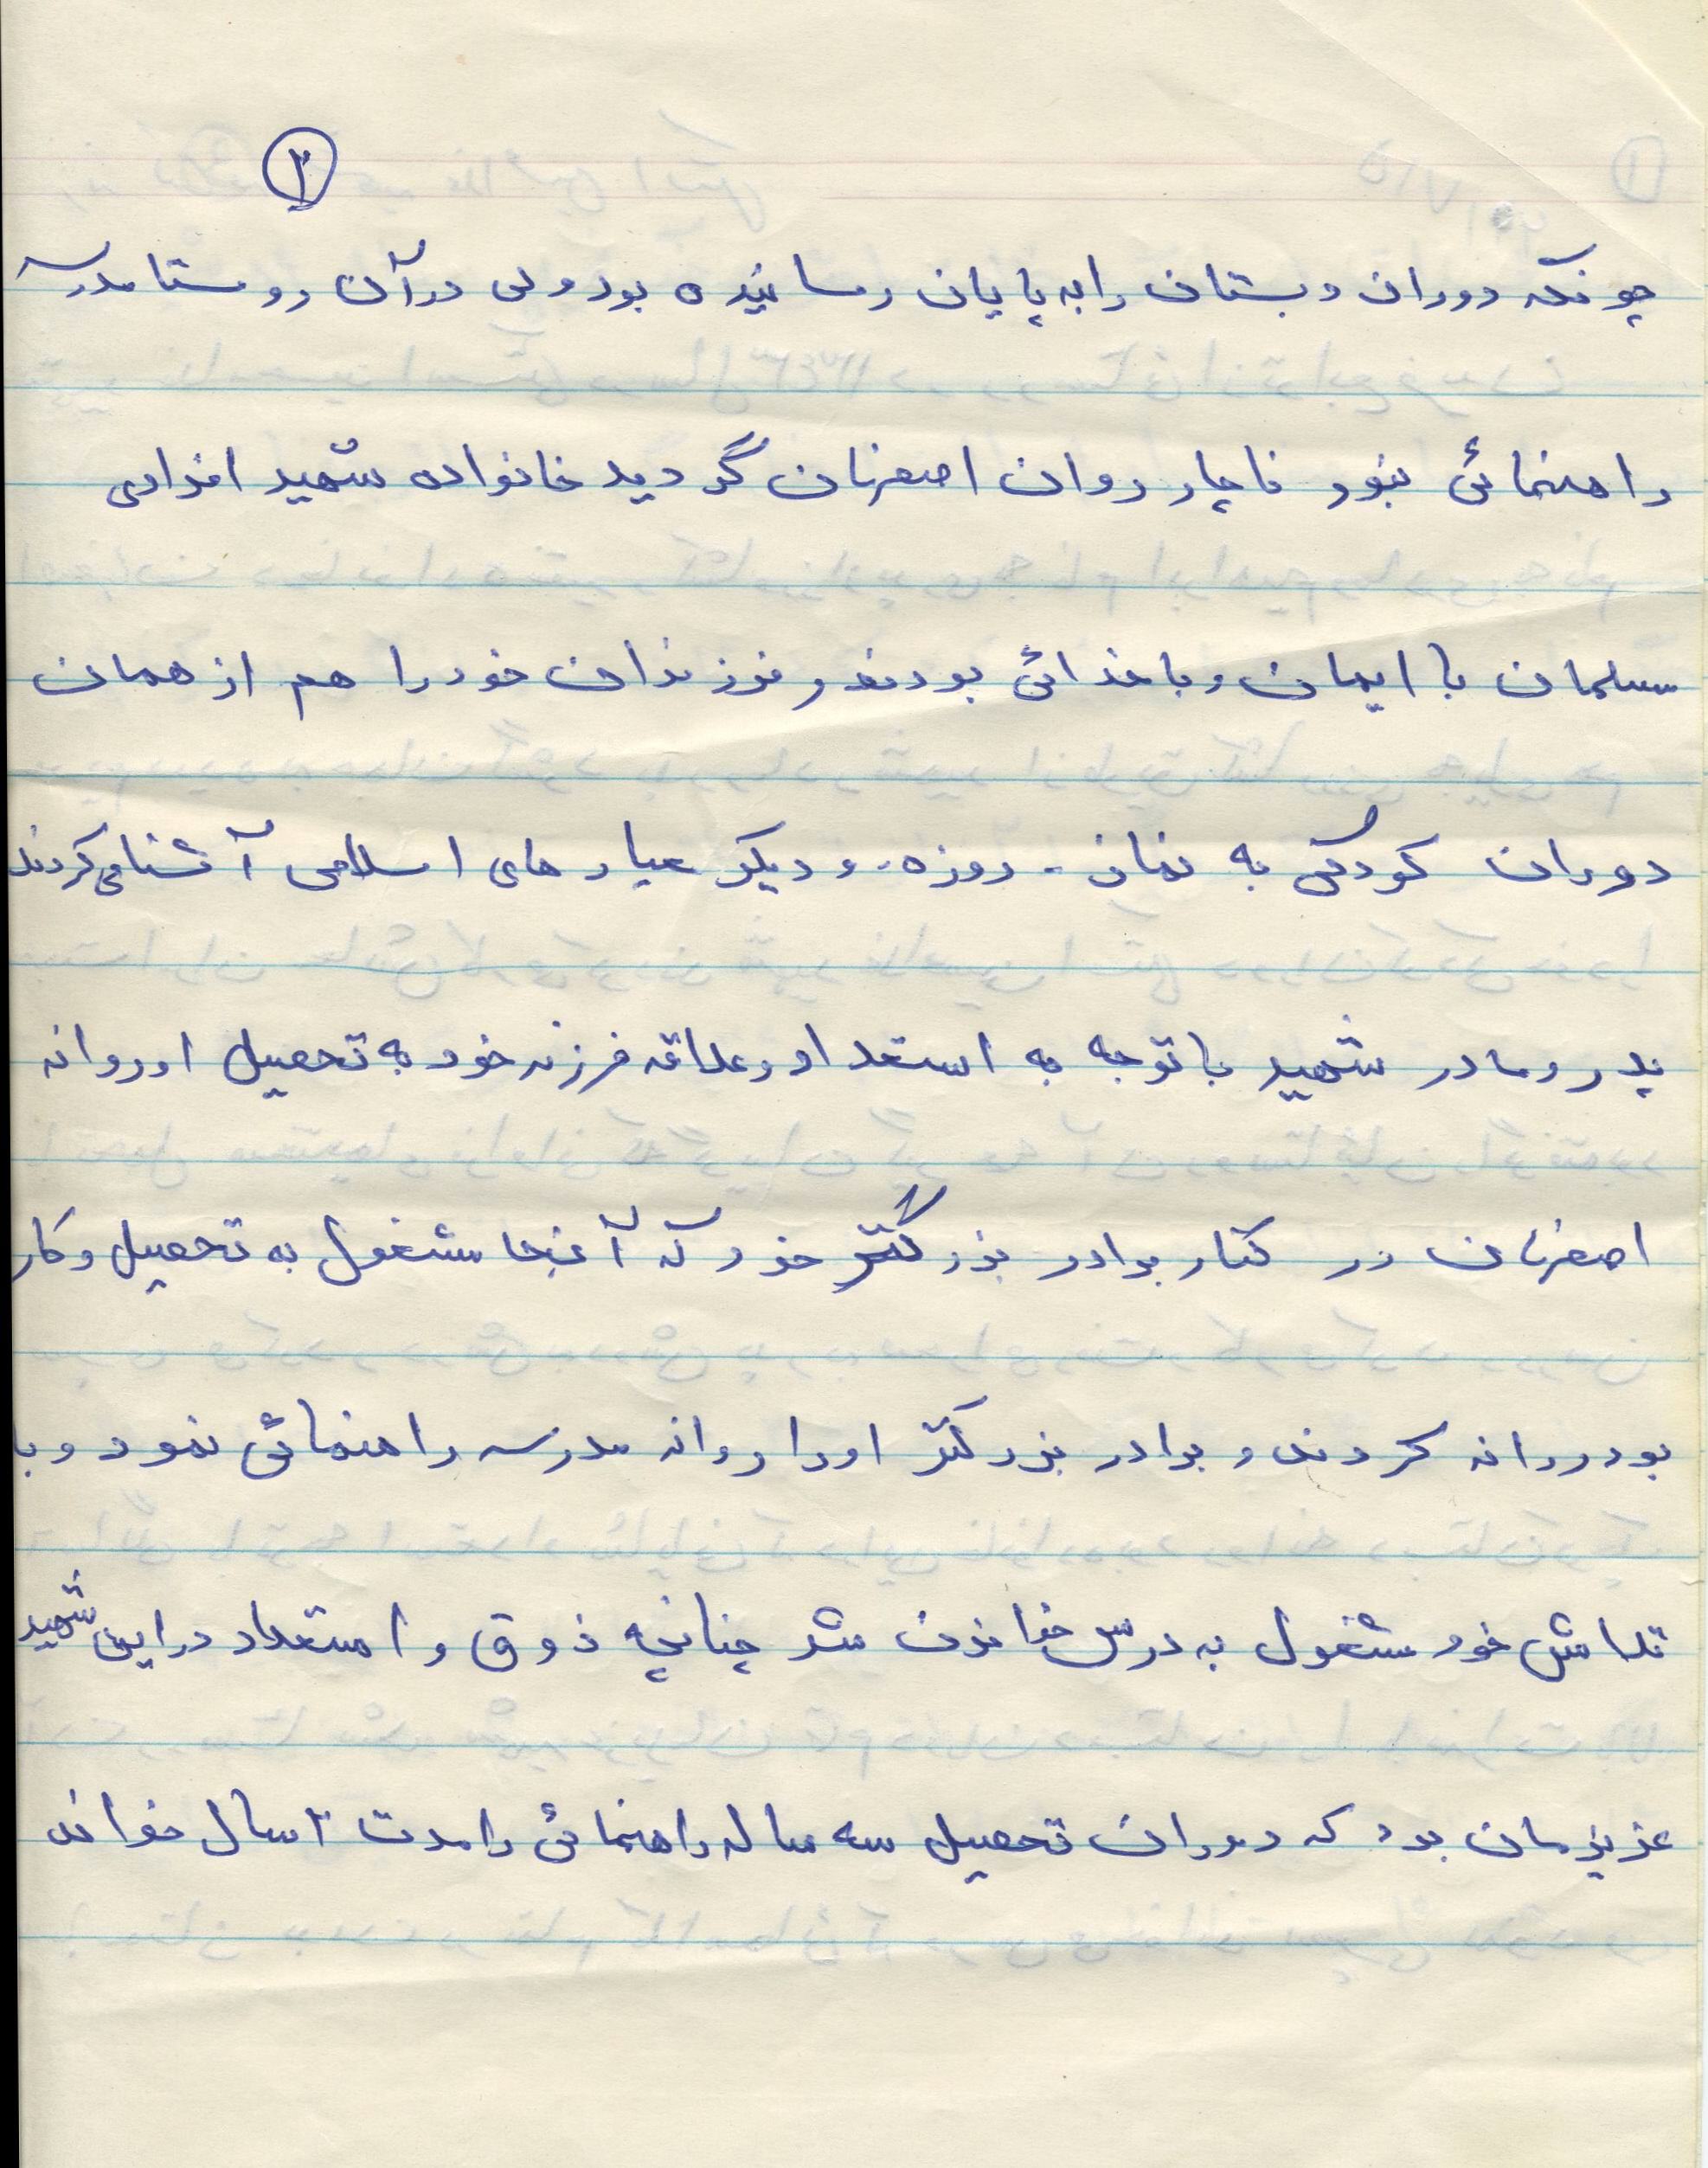 ۲
چونکه دوران دبستان را به پایان رسانیده بود ولی در آن روستا مدرسه
راهنمائی نبود ناچار روان اصفهان گردید خانواده شهید افرادی
مسلمان با ایمان و با خدائی بودند و فرزندان خود را هم از همان
دوران کودکی به نماز - روزه - و دیگر عیارهای اسلامی آشنا می‌کردند
پدر و مادر شهید با توجه به استعداد و علاقه فرزند خود به تحصیل او روانه
اصفهان در کنار برادر بزرگتر خود که آنجا مشغول به تحصیل و کار
بود روانه کردند و برادر بزرگتر او را روانه مدرسه راهنمائی نمود و با
تلاش خود مشغول به درس خواندن شد چنانچه ذوق و استعداد در این شهید
عزیزمان بود که دوران تحصیل سه ساله راهنمائی را مدت ۲ سال خواند